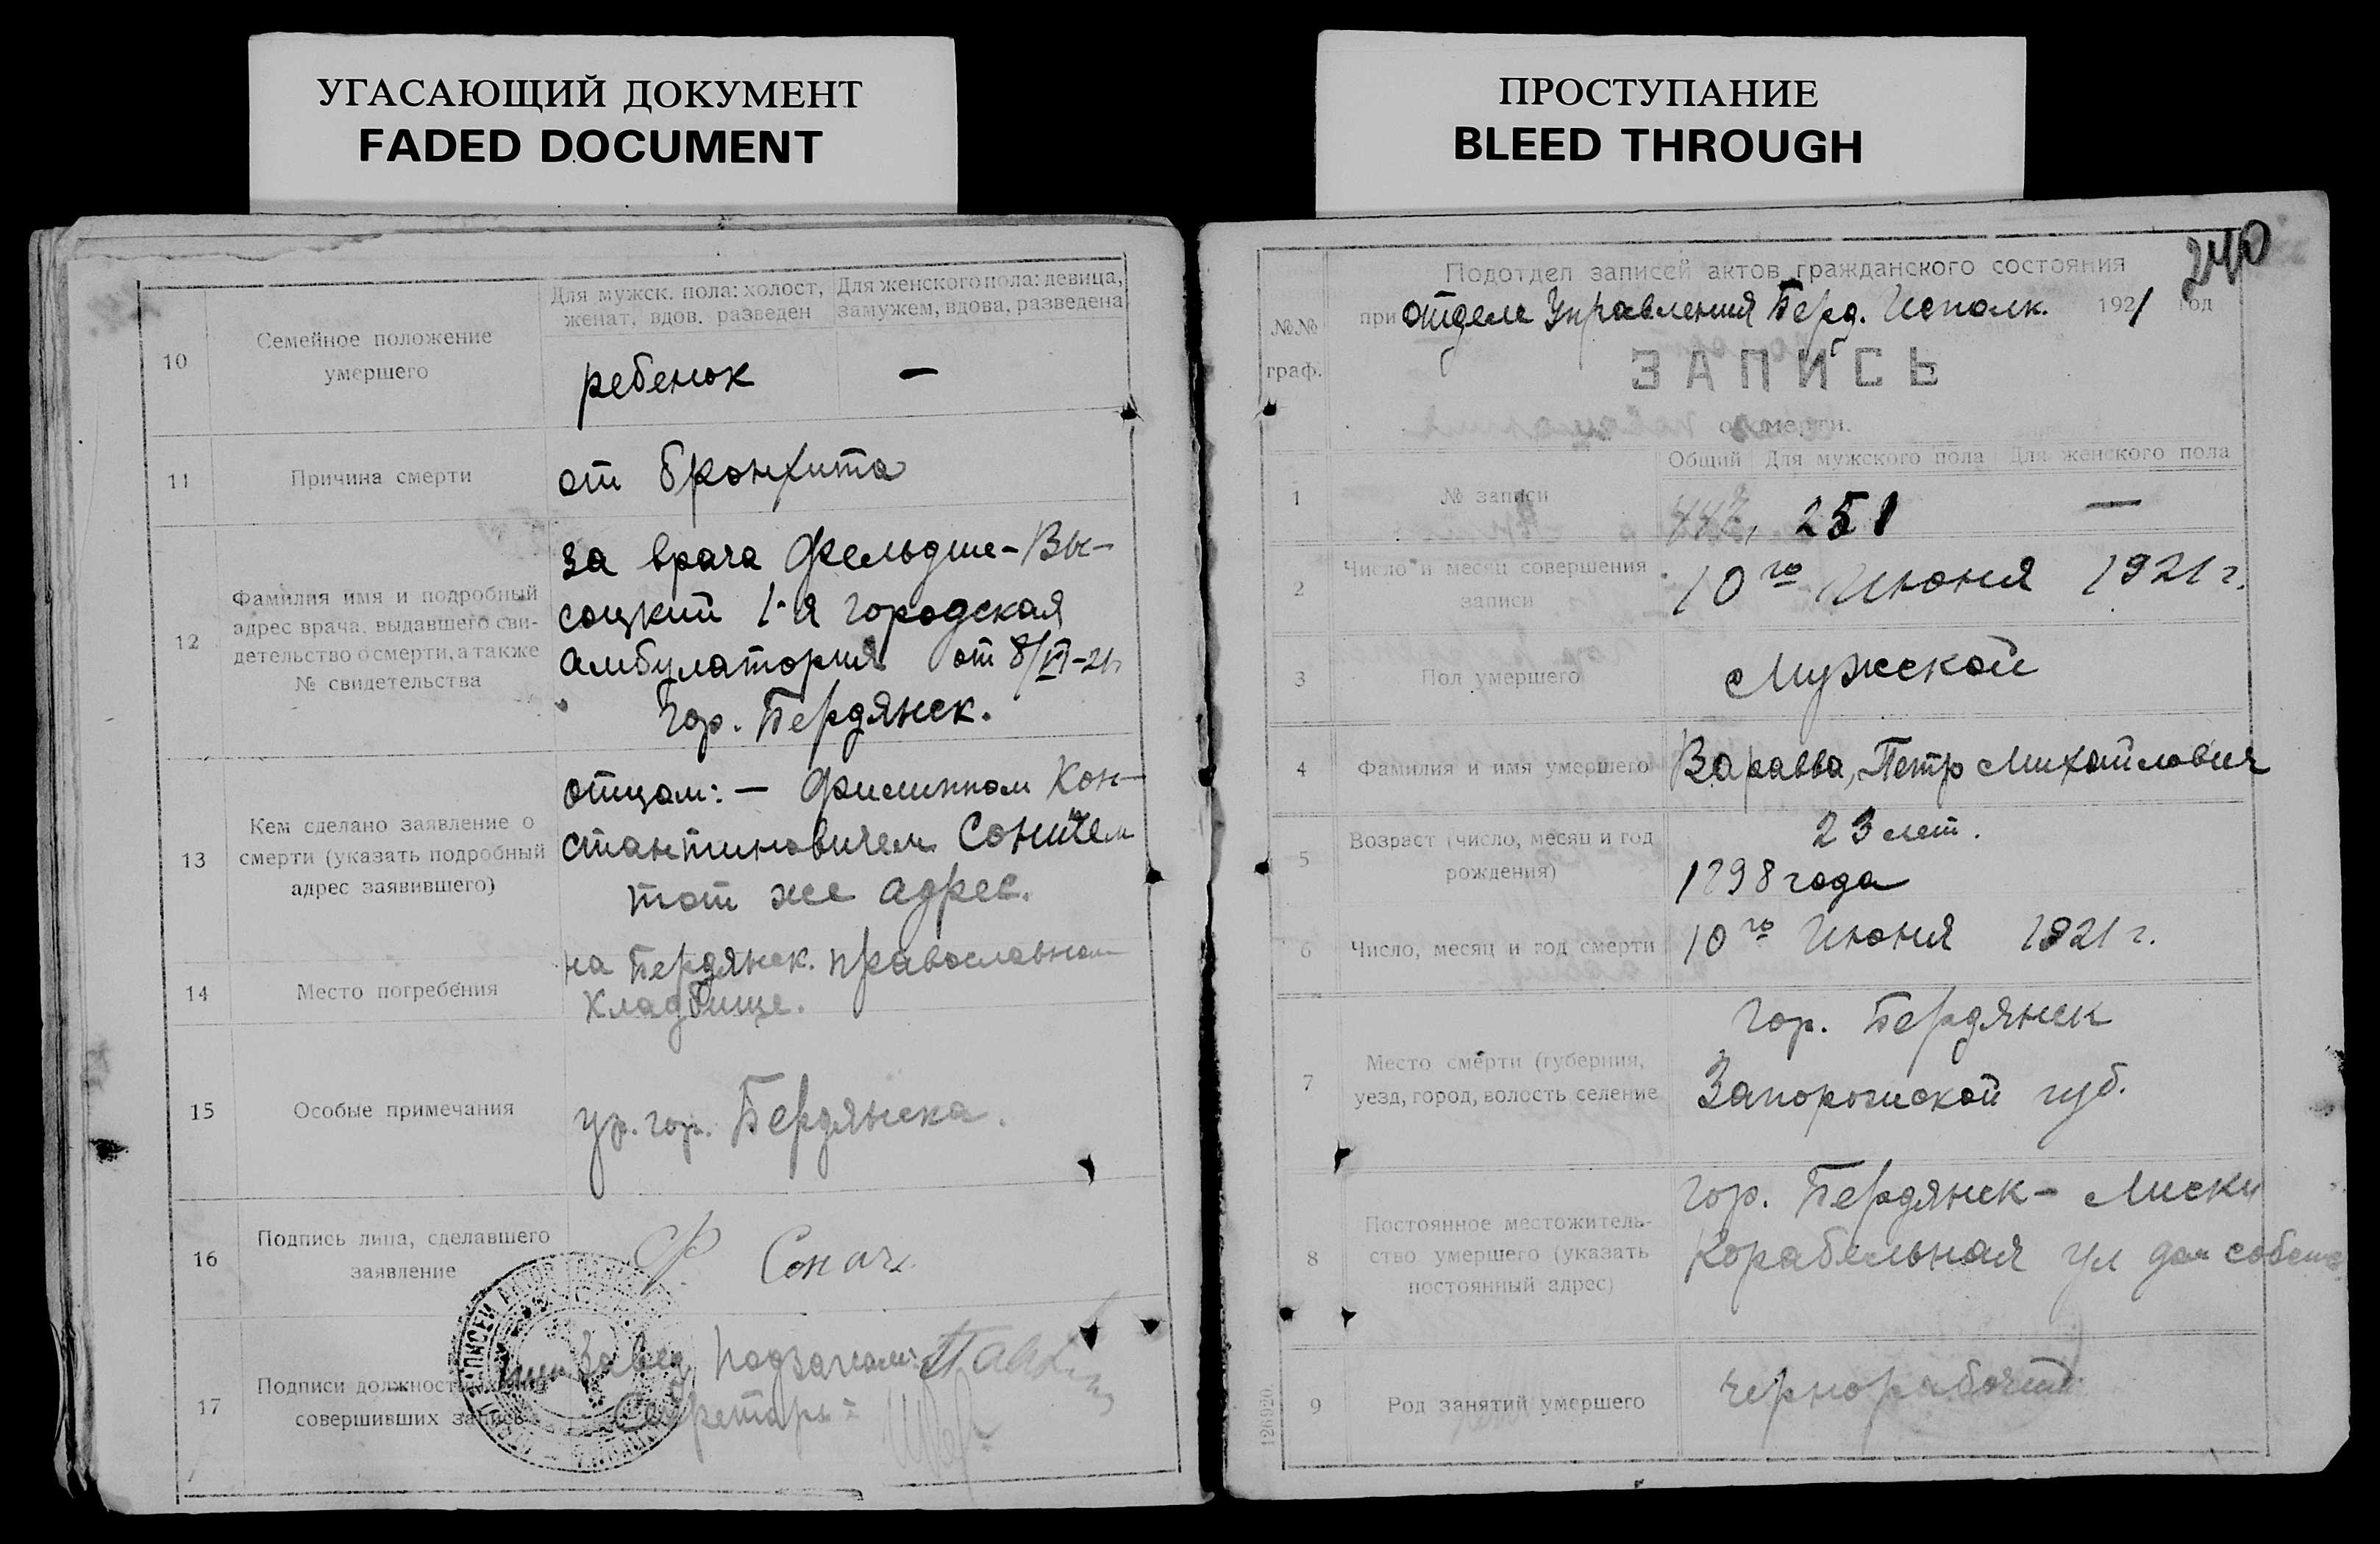 УГАСАЮЩИЙ ДОКУМЕНТ
FADED DOCUMENT
10
Семейное положение
умершего
Для мужск. пола: холост,
женат, вдов. разведен
Для женского пола: девица,
замужем, вдова, разведена
ребенок
—
11
Причина смерти
от бронхита
12
Фамилия имя и подробный
адрес врача, выдавшего сви-
детельство о смерти, а также
№ свидетельства
за врача Фельдше-Вы-
соцкий 1-я городская
амбулатория от 8/VI-21г
Гор. Бердянск.
13
Кем сделано заявление о
смерти (указать подробный
адрес заявившего)
отцом: — Филиппом Кон-
стантиновичем
тот же адрес.
14
Место погребения
на Бердянск. православном
кладбище.
15
Особые примечания
ур. гор. Бердянска.
16
Подпись лица, сделавшего
заявление
Ф Сонач
17
Подписи должностных лиц
совершивших запись
Завед. Подзагсом:
Секретарь =
ПРОСТУПАНИЕ
BLEED THROUGH
240
№№
граф.
Подотдел записей актов гражданского состояния
при отделе Управления Берд. Исполк. 1921 год
ЗАПИСЬ
о смерти.
1
№ записи
Общий
Для мужского пола
Для женского пола
447, 251 —
2
Число и месяц совершения
записи
10го Июня 1921 г.
3
Пол умершего
Мужской
4
Фамилия и имя умершего
Варавва, Петр Михайлович
5
Возраст (число, месяц и год
рождения)
23 лет.
1898 года
6
Число, месяц и год смерти
10го Июня 1921 г.
7
Место смерти (губерния,
уезд, город, волость селение
Гор. Бердянск
Запорожской губ.
8
Постоянное местожитель-
ство умершего (указать
постоянный адрес)
Гор. Бердянск — Лиски
Корабельная ул дом собств.
9
Род занятий умершего
чернорабочий
126920.